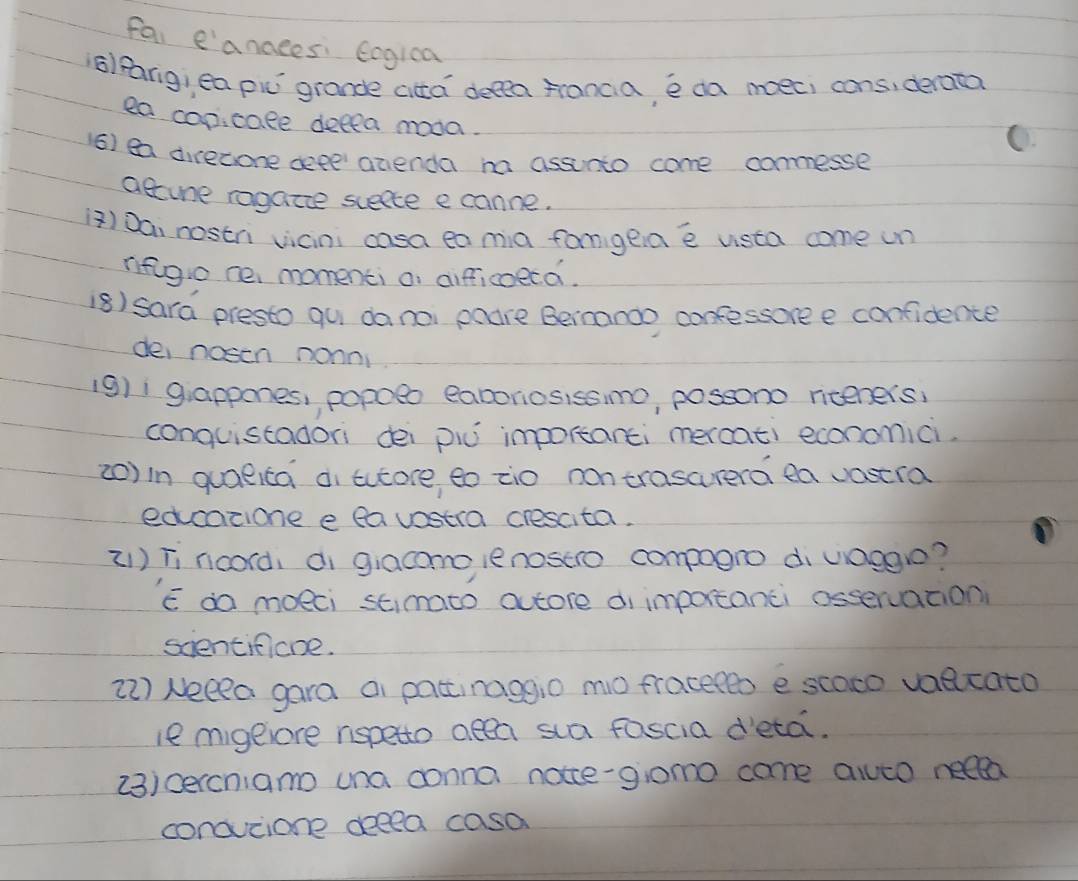 Fai l'analisi logica
15) Parigi, la piú grande cittá della Francia, é da molti considerata
la capitale della moda.
16) La direzione dell'azienda ha assunto come commesse
alcune ragazze svelte e carine.
17) Dai nostri vicini casa la mia famiglia é vista come un
rifugio nei momenti di difficoltá.
18) Sará presto qui da noi padre Bernardo, confessore e confidente
dei nostri nonni
19) i giapponesi, popolo laboriosissimo, possono ritenersi
conquistadori dei piú importanti mercati economici.
20) In qualitá di tutore, lo zio non trascurerá la vostra
educazione e la vostra crescita.
21) Ti ricordi di giacomo, il nostro compagno di viaggio?
É da molti stimato autore di importanti osservazioni
scientifiche.
22) Nella gara di pattinaggio mio fratello é stato valutato
il migliore rispetto alla sua fascia d'etá.
23) Cerchiamo una donna notte-giorno come aiuto nella
conduzione della casa